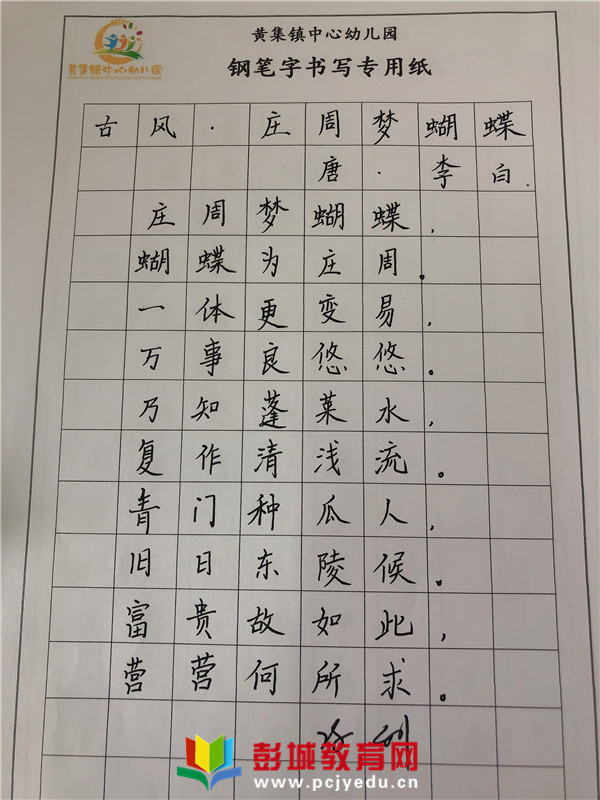 黄集镇中心幼儿园
黄集镇中心幼儿园
钢笔字书写专用纸
古风·庄周梦蝴蝶
唐·李白.
庄周梦蝴蝶,
蝴蝶为庄周。
一体更变易,
万事良悠悠。
乃知蓬莱水,
复作清浅流。
青门种瓜人,
旧日东陵候。
富贵故如此,
营营何所求。
彭城教育网
www.pcjyedu.cn